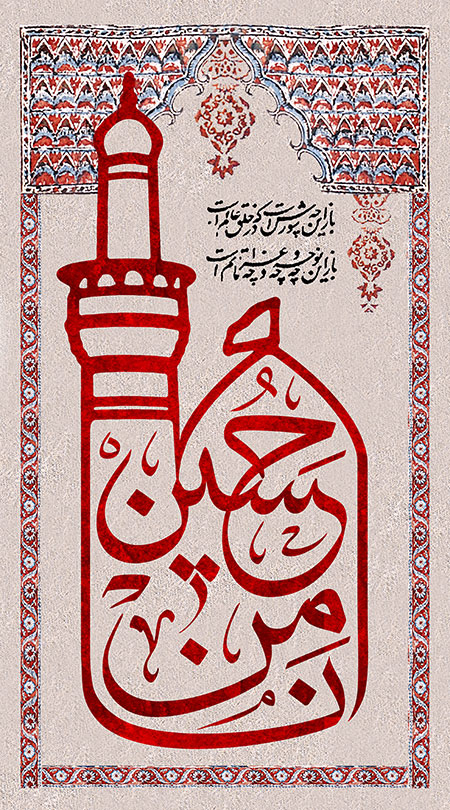 باز این چه شورش است که در خلق عالم است
باز این چه نوحه و چه عزا و چه ماتم است
انا من حسین